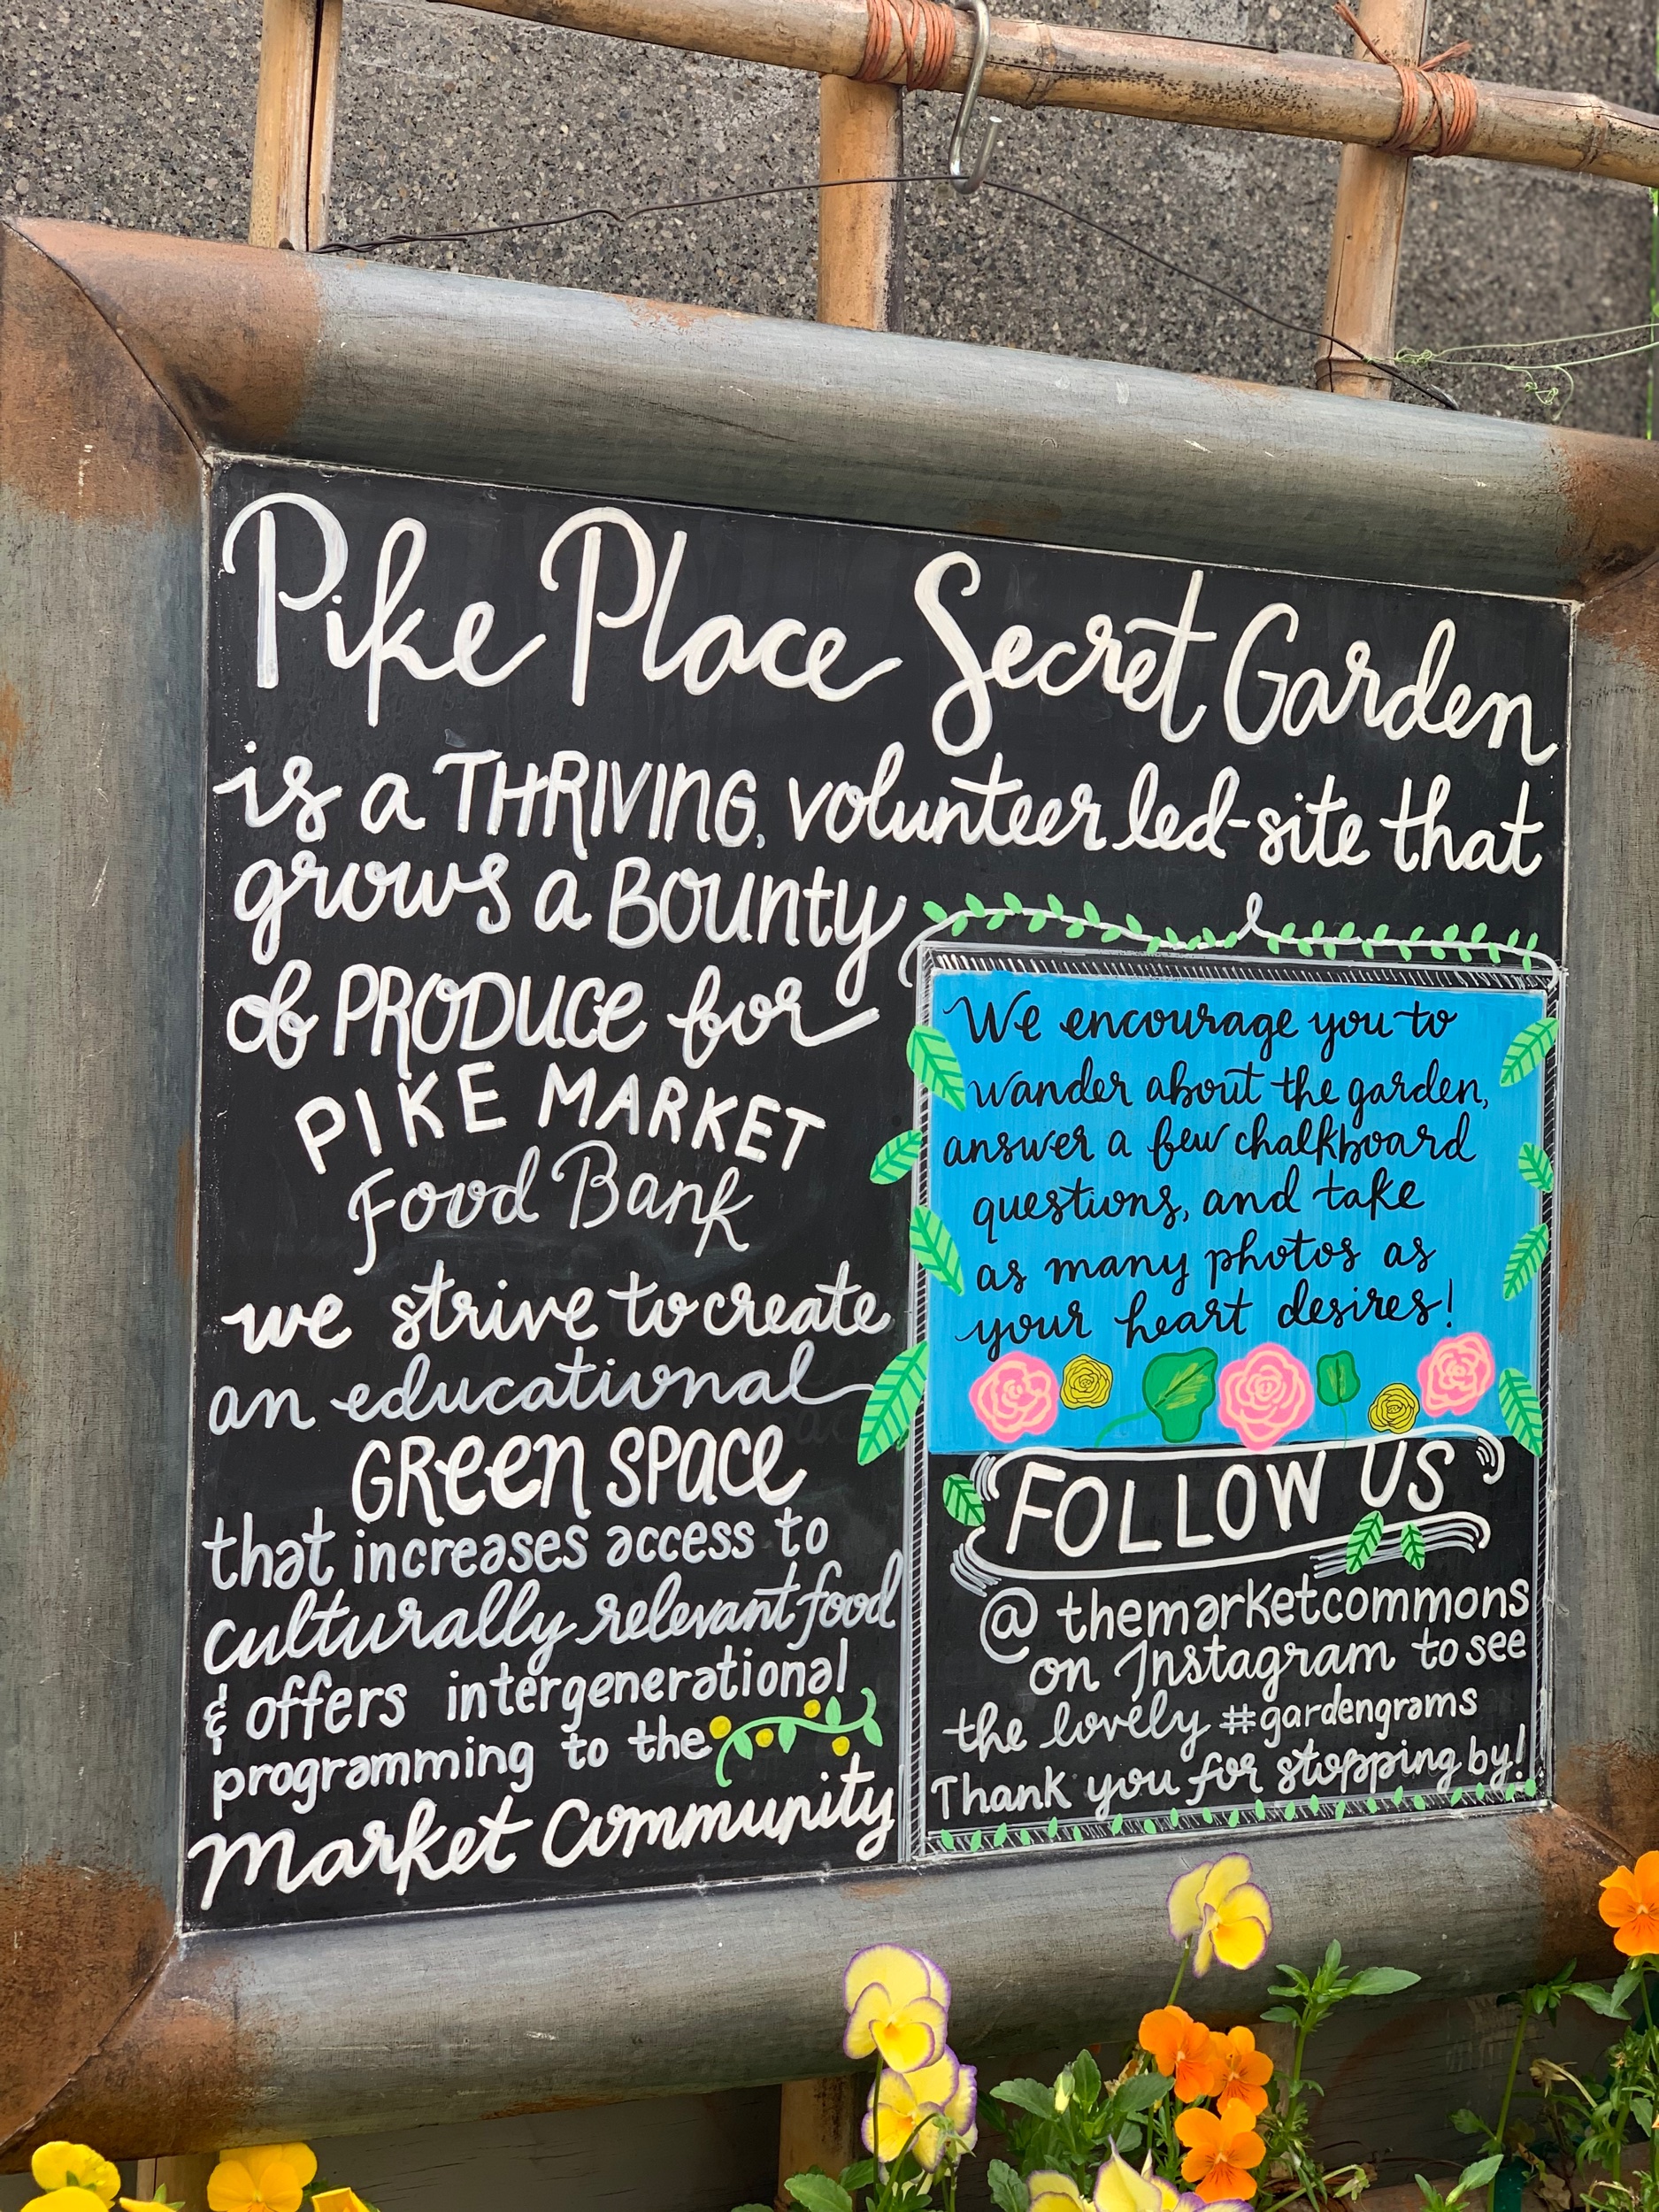 Pike Place Secret Garden
is a THRIVING, volunteer led-site that
grows a BOUNTY
of PRODUCE for
PIKE MARKET
Food Bank
we strive to create
an educational
GREEN SPACE
that increases access to
culturally relevant food
& offers intergenerational
programming to the
Market Community
We encourage you to
wander about the garden,
answer a few chalkboard
questions, and take
as many photos as
your heart desires!
FOLLOW US
@themarketcommons
on Instagram to see
the lovely #gardengrams
Thank you for stopping by!